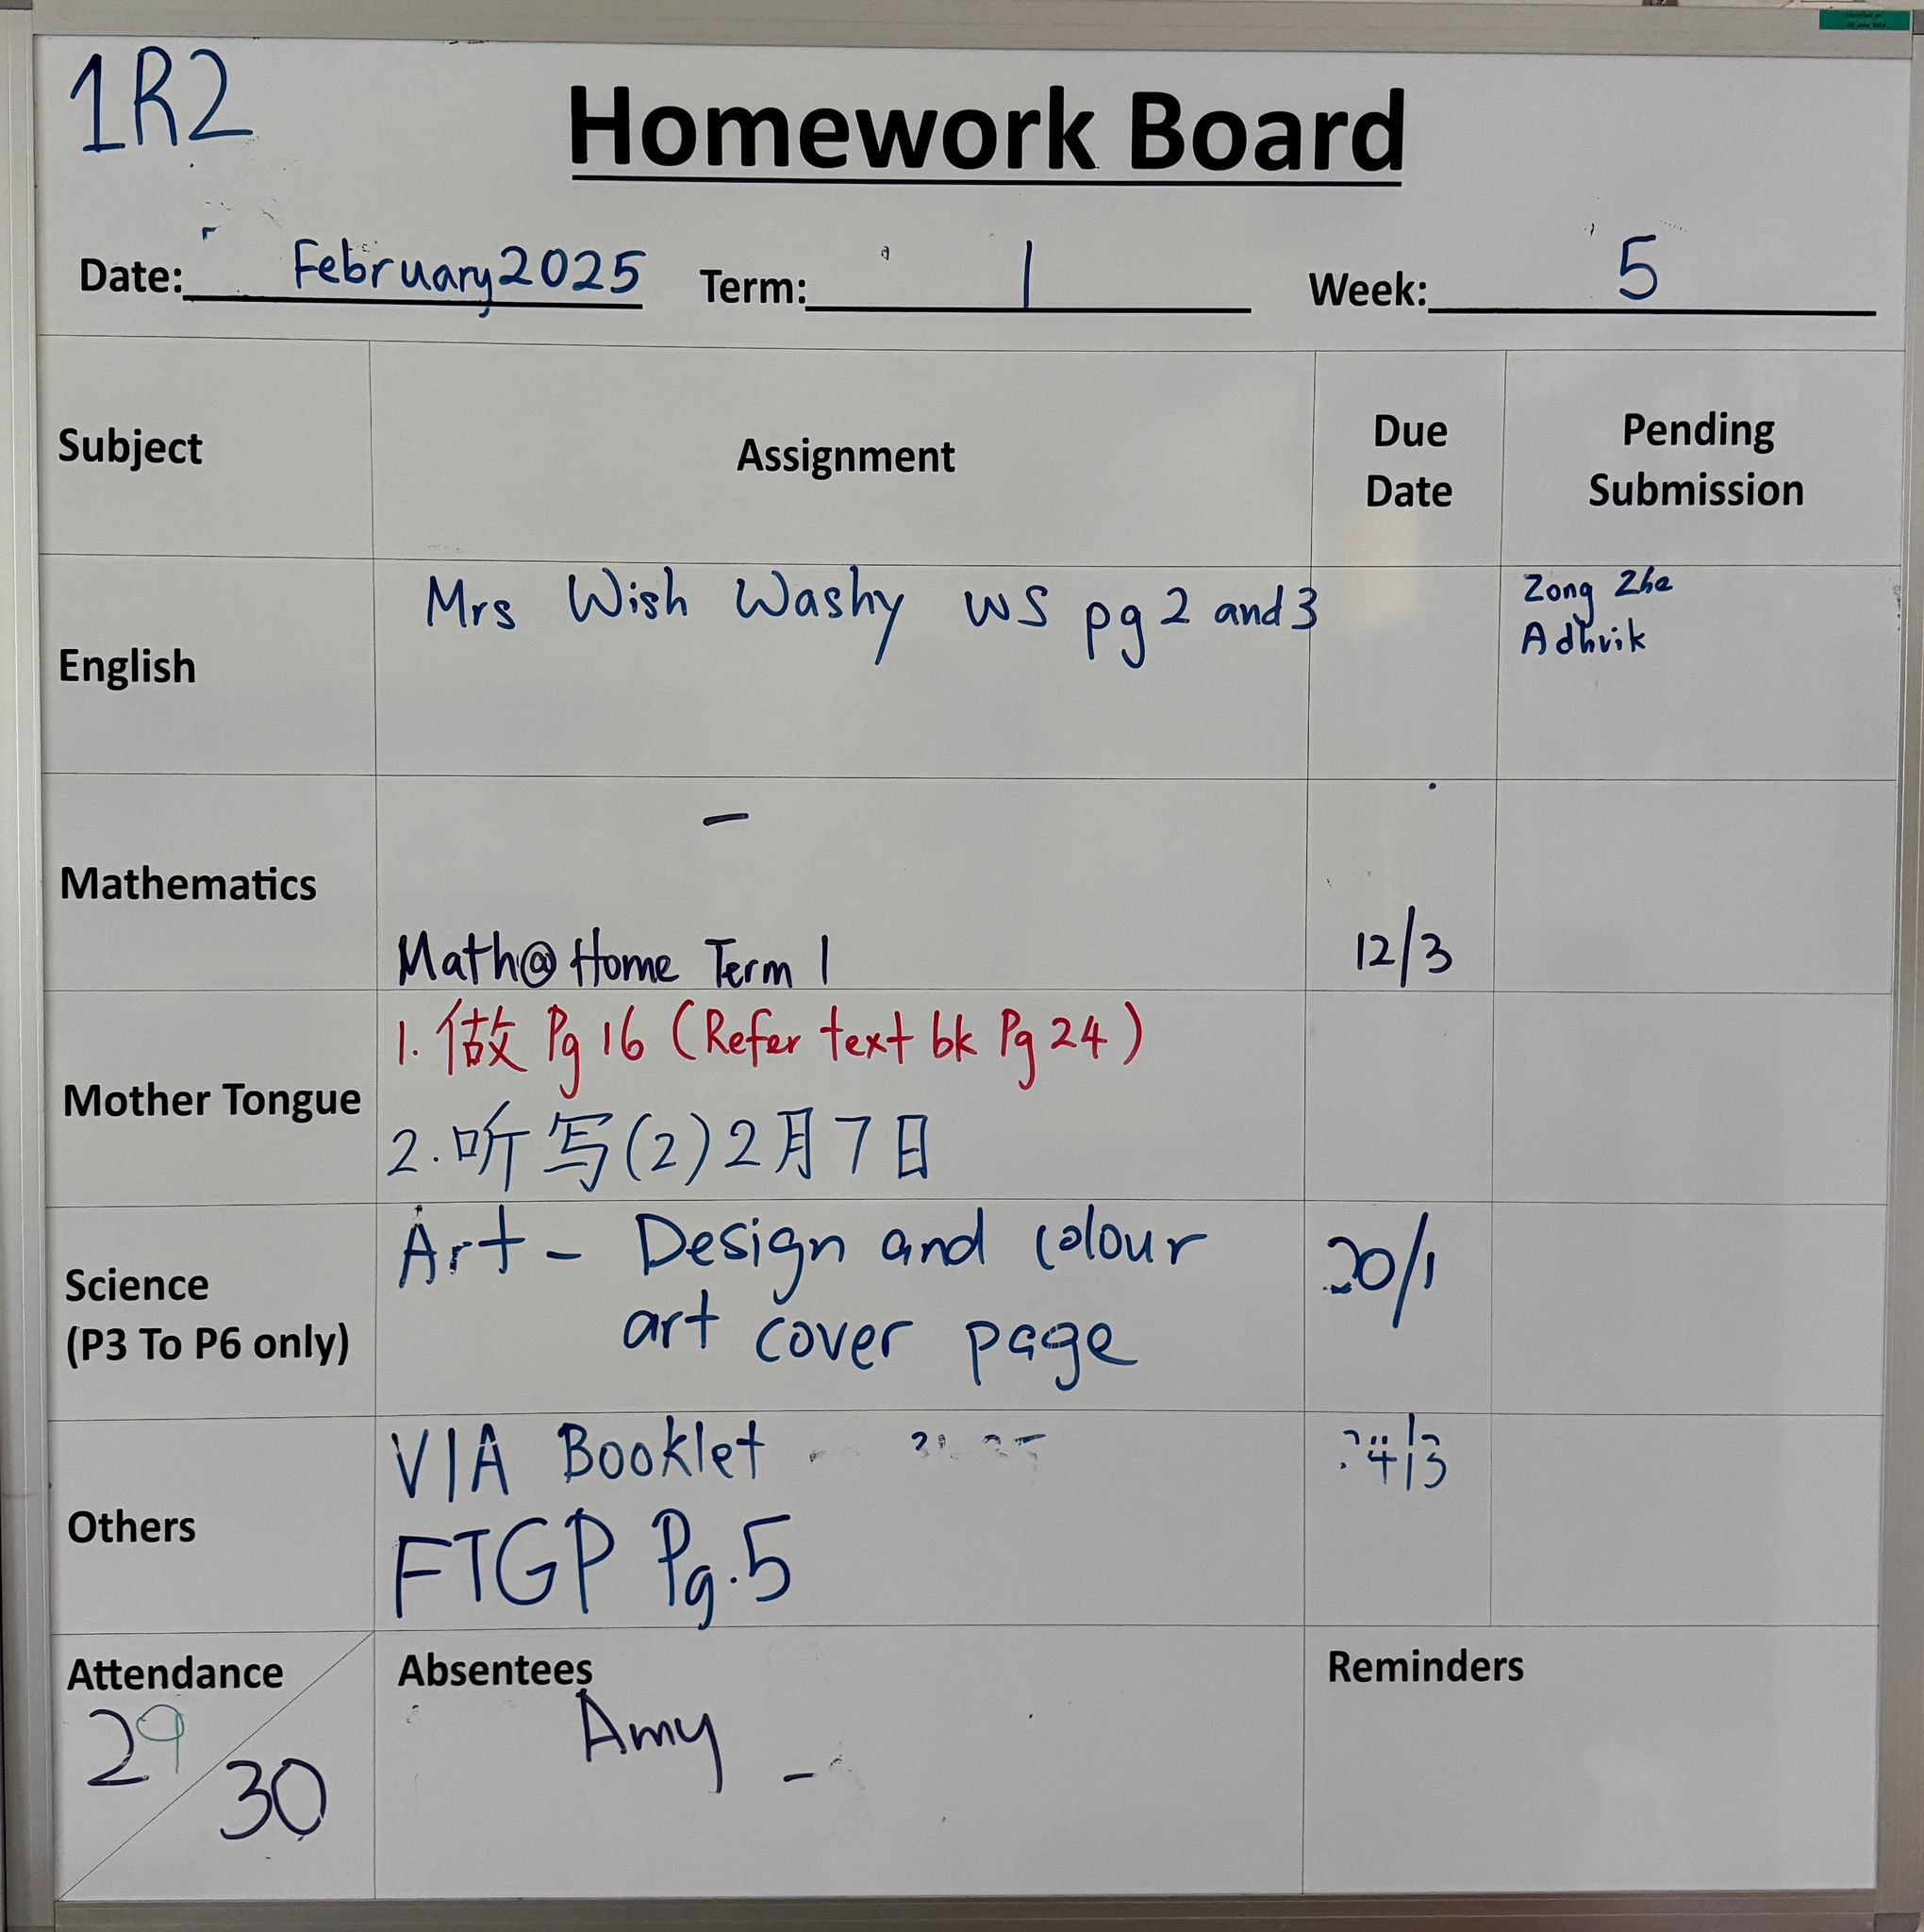 1R2
Homework Board
Date: February 2025 Term: 1 Week: 5
Subject Assignment Due Date Pending Submission
English Mrs Wish Washy WS pg 2 and 3 Zong Zhe
Adhvik
Mathematics –
Math@Home Term 1 12/3
Mother Tongue 1. 做 Pg 16 (Refer text bk Pg 24)
2. 听写(2) 2月7日
Science
(P3 To P6 only)
Art – Design and colour 20/1
art cover page
Others
VIA Booklet
FTGP Pg. 5
Attendance Absentees Reminders
29 Amy –
30